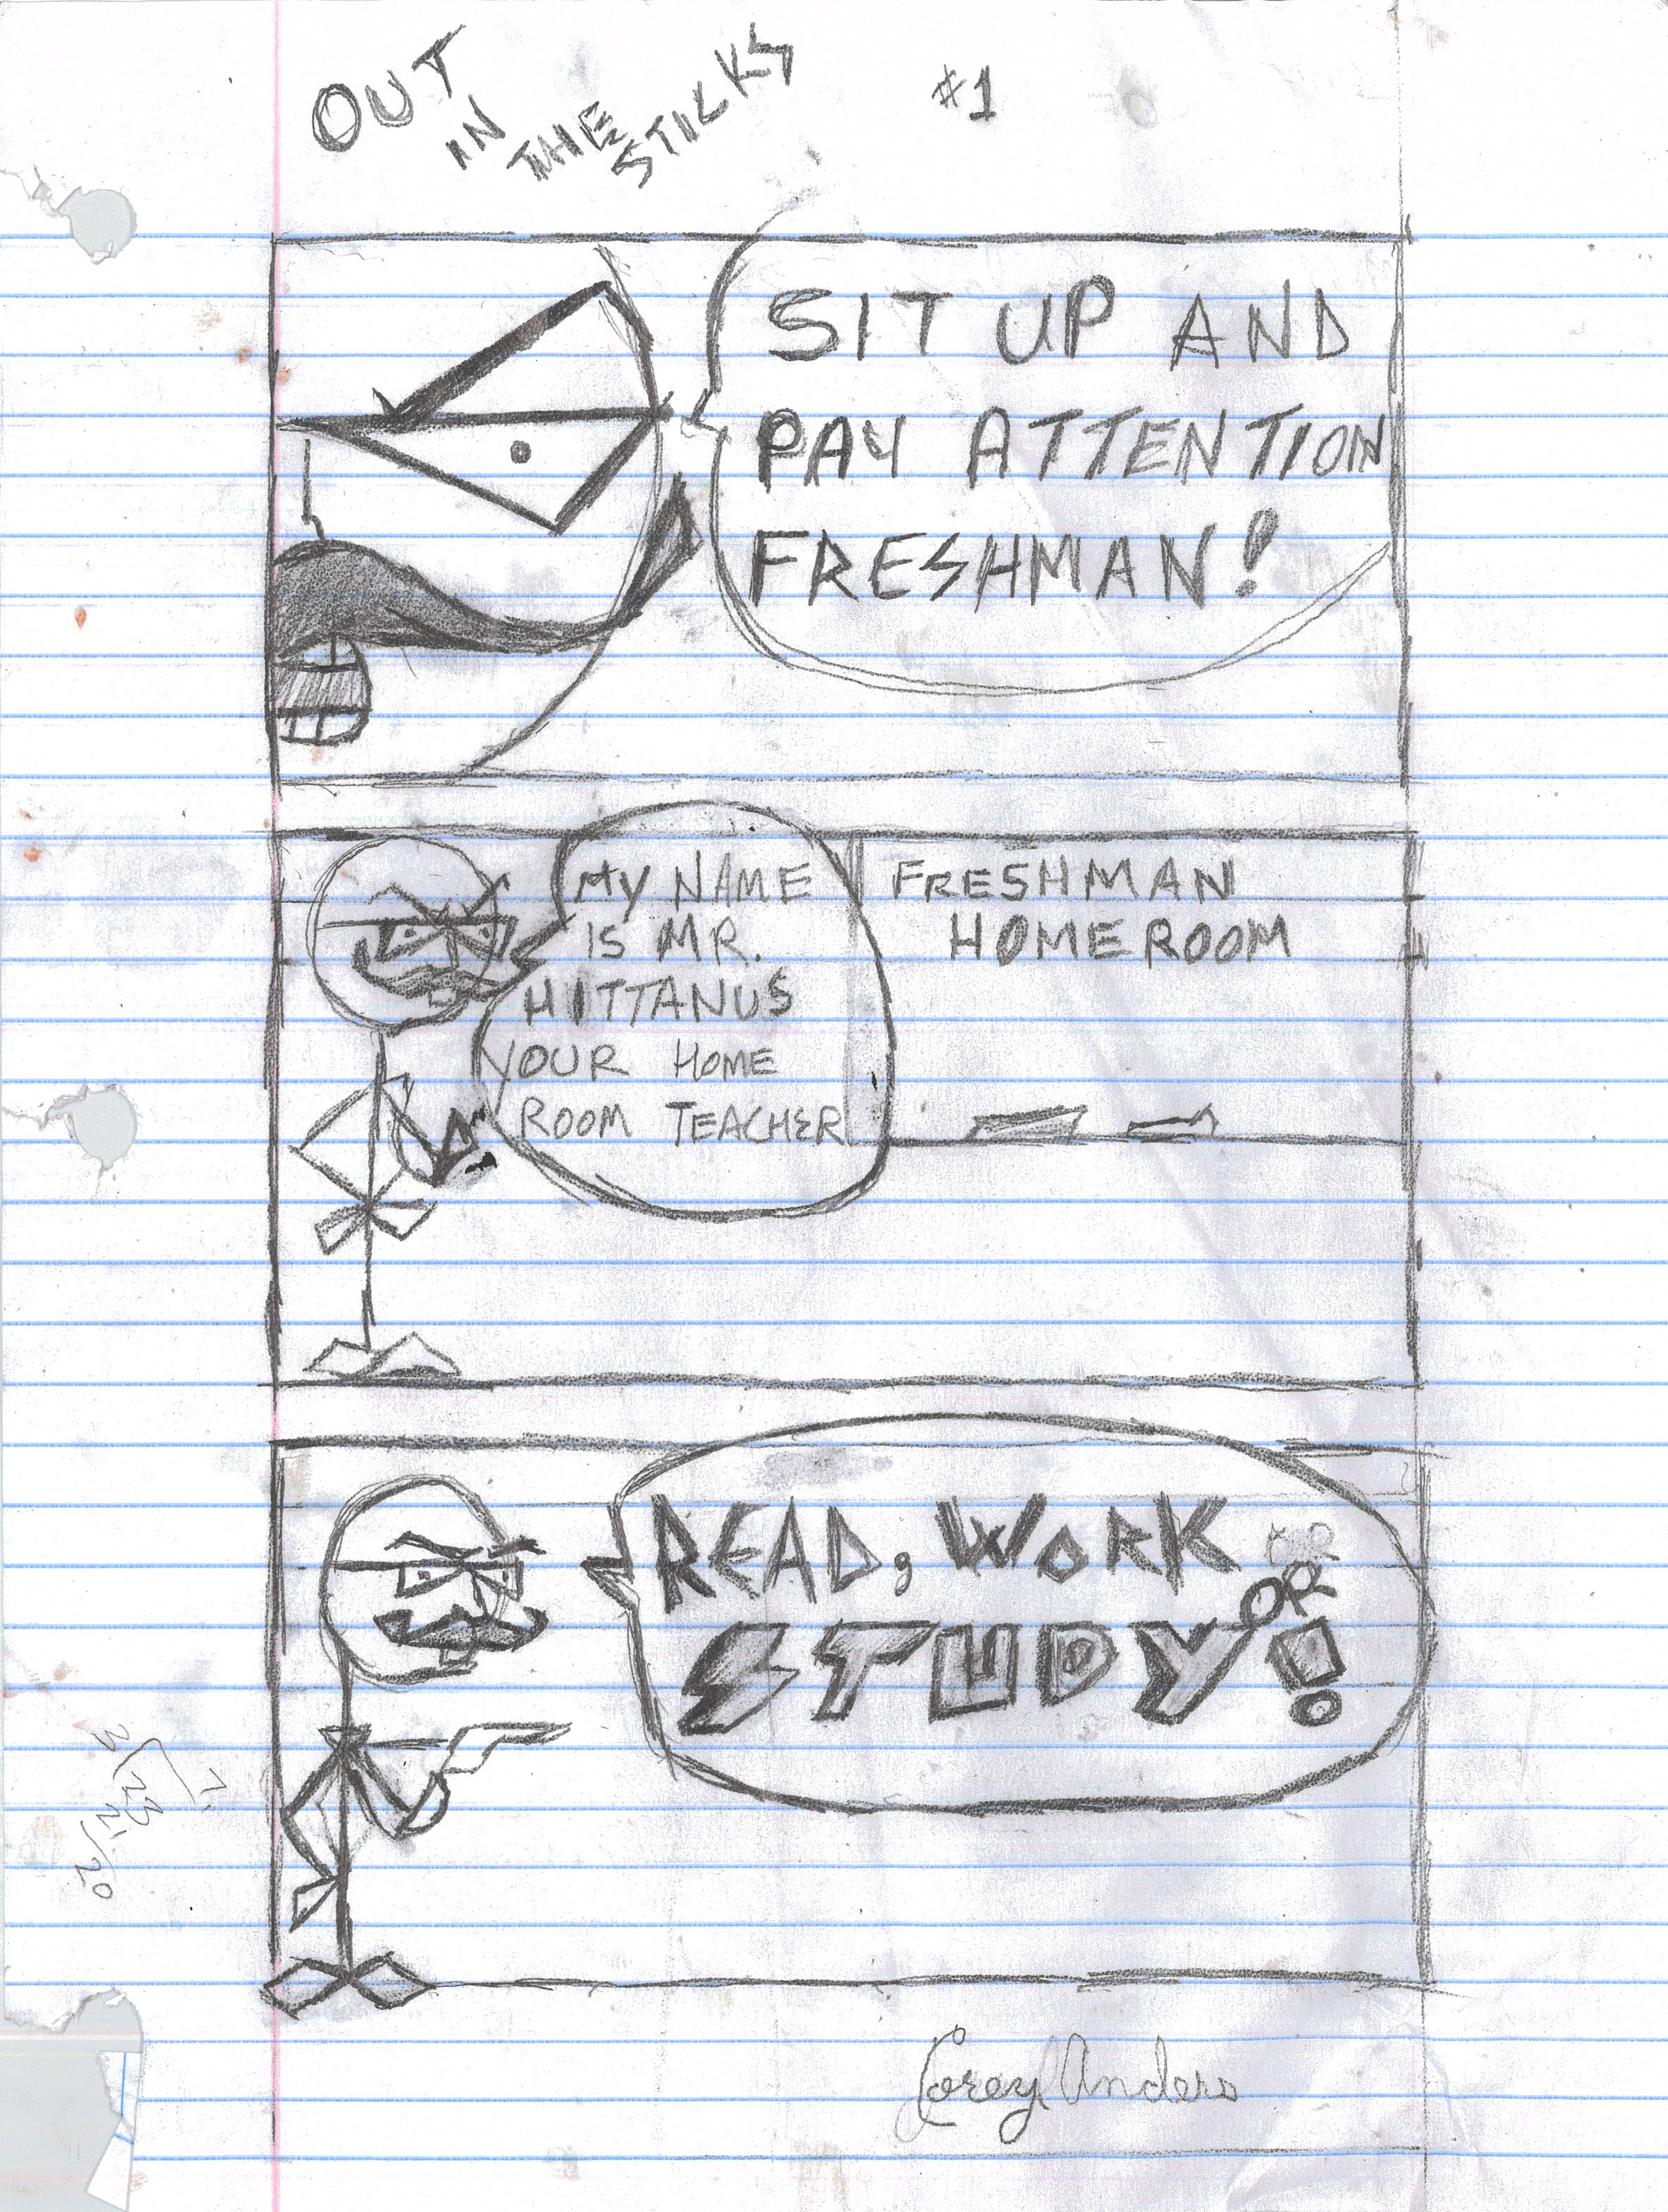 OUT
IN
THE
STICKS
#1
SIT UP AND
PAY ATTENTION
FRESHMAN!
MY NAME
IS MR.
HITTANUS
YOUR HOME
ROOM TEACHER
FRESHMAN
HOMEROOM
READ, WORK
OR
STUDY!
Corey Anders